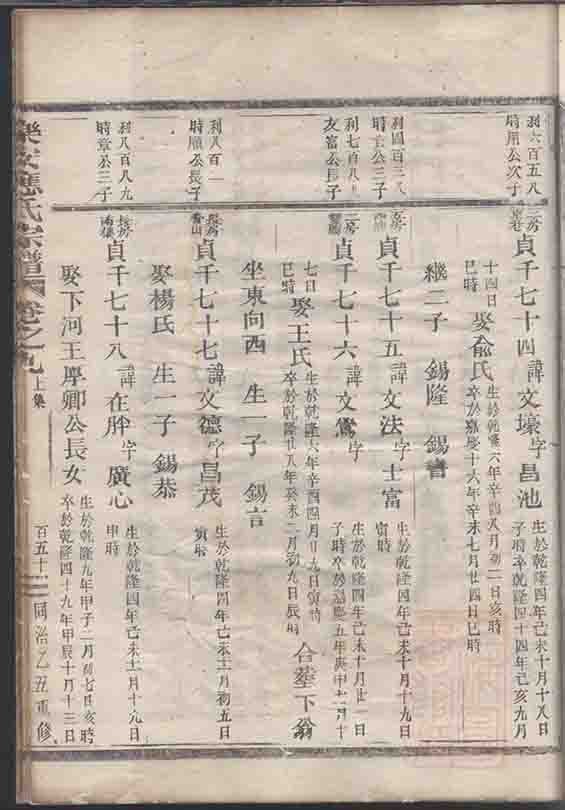 利六百五八
時用公次子
貞千七十四諱文壕字昌池
生於乾隆四年己未十月十八日
子時卒於乾隆四十四年己亥九月
十四日
巳時
娶俞氏
生於乾隆六年辛酉八月初二日亥時
卒於嘉慶十六年辛未七月廿四日巳時
繼二子 錫隆 錫書
利四百三八
公三子
貞千七十五諱文法字士富
生於乾隆四年己未十月十九日
寅時
利七百八
友富公長子
二房
貞千七十六諱文鸞字
生於乾隆四年己未十月廿一日
子時卒於嘉慶五年庚申十二月十
七日
巳時
娶王氏
生於乾隆六年辛酉四月廿九日寅時
卒於乾隆廿八年癸未二月初九日辰時
合塟下翁
坐東向西 生一子 錫言
利八百一
時順公長子
長房
香山
貞千七十七諱文德字昌茂
生於乾隆四年己未十二月初五日
寅時
娶楊氏 生一子 錫恭
利八百八九
時章公三子
長房
貞千七十八諱在胖字廣心
生於乾隆四年己未十二月十九日
申時
娶下河王厚卿公長女
生於乾隆九年甲子二月初七日亥時
卒於乾隆四十九年甲辰十月十三日
樂安應氏宗譜 卷之九 上集
百五十一
同治乙丑重修